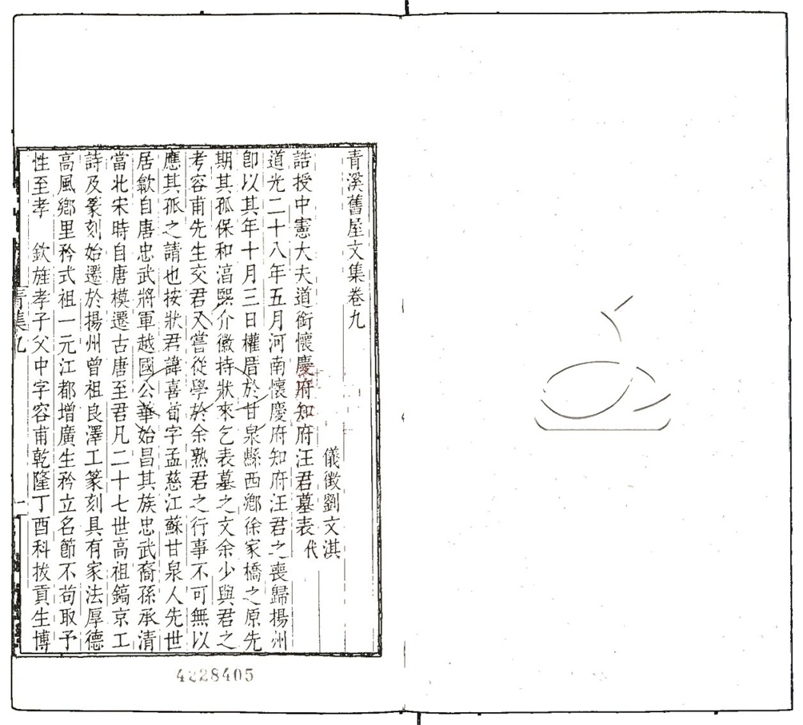 青溪舊屋文集卷九
儀徵劉文淇
誥授中憲大夫道銜懷慶府知府汪君墓表代
道光二十八年五月河南懷慶府知府汪君之喪歸揚州
卽以其年十月三日權厝於甘泉縣西鄉徐家橋之原先
期其孤保和㵆熙介徽持狀來乞表墓之文余少與君之
考容甫先生交君又嘗從學於余熟君之行事不可無以
應其孤之請也按狀君諱喜荀字孟慈江蘇甘泉人先世
居歙自唐忠武將軍越國公華始昌其族忠武裔孫承清
當北宋時自唐模遷古唐至君凡二十七世高祖鎬京工
詩及篆刻始遷於揚州曾祖良澤工篆刻具有家法厚德
高風鄉里矜式祖一元江都增廣生矜立名節不苟取予
性至孝　欽旌孝子父中字容甫乾隆丁酉科拔貢生博
青集九
一
4228405